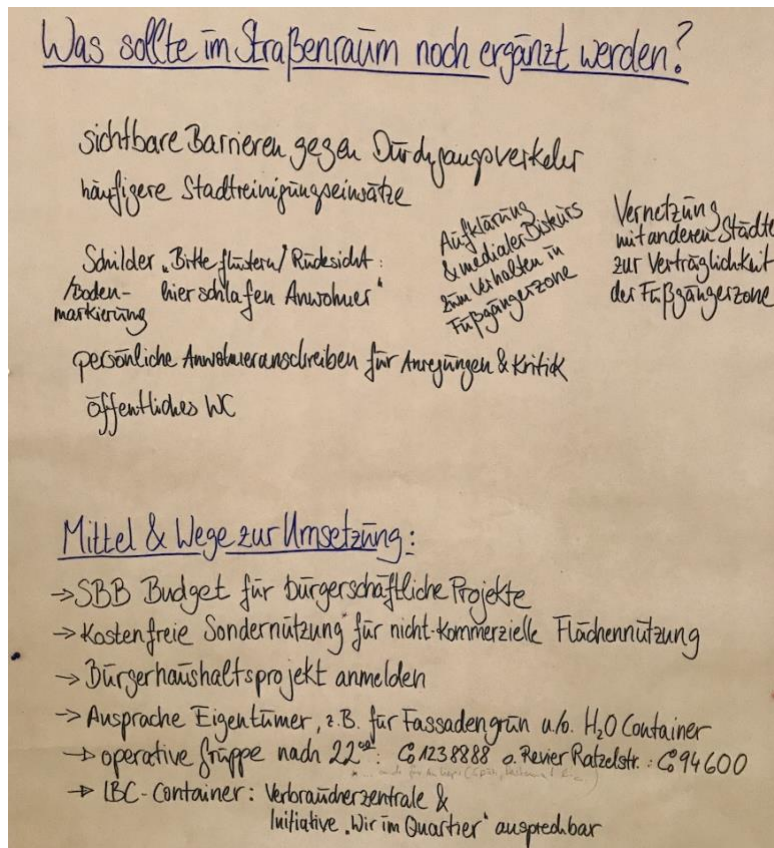 Was sollte im Straßenraum noch ergänzt werden?
sichtbare Barrieren gegen Durchgangsverkehr
häufigere Stadtreinigungseinsätze
Schilder „Bitte flüstern / Rücksicht:
/Boden- hier schlafen Anwohner“
markierung
Aufklärung
& medialer Diskurs
zum Verhalten in
Fußgängerzone
Vernetzung
mit anderen Städte
zur Verträglichkeit
der Fußgängerzone
persönliche Anwohneranschreiben für Anregungen & Kritik
öffentliches WC
Mittel & Wege zur Umsetzung:
→ SBB Budget für bürgerschaftliche Projekte
→ Kostenfreie Sondernutzung für nicht-kommerzielle Flächennutzung
→ Bürgerhaushaltsprojekt anmelden
→ Ansprache Eigentümer, z.B. für Fassadengrün u/o. H₂O Container
→ operative Gruppe nach 22 : 1238888 o. Revier Ratzelstr.: 94600
→ LBC-Container: Verbraucherzentrale &
Initiative „Wir im Quartier“ ansprechbar